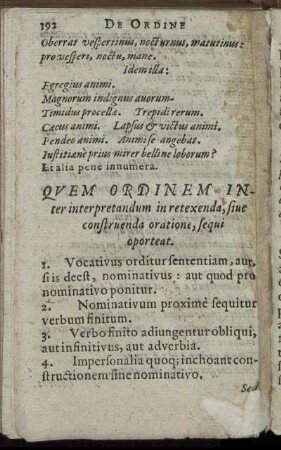 192 DE ORDINE
Oberrat vespertinus, nocturnus, matutinus:
pro vesperi, noctu, mane.
Idem illa:
Egregius animi.
Magnorum indignus avorum.
Timidus procellæ. Trepidi rerum.
Cæcus animi. Lapsus & victus animi.
Pendeo animi. Animi se angebat.
Iustitiæne prius mirer belline laborum?
Et alia pene innumera.
QVEM ORDINEM IN-
ter interpretandum in retexenda, siue
construenda oratione, sequi
oporteat.
1. Vocativus orditur sententiam, aut,
si is deest, nominativus : aut quod pro
nominativo ponitur.
2. Nominativum proximè sequitur
verbum finitum.
3. Verbo finito adiungentur obliqui,
aut infinitivus, aut adverbia.
4. Impersonalia quoq; inchoant con-
structionem sine nominativo.
Sed